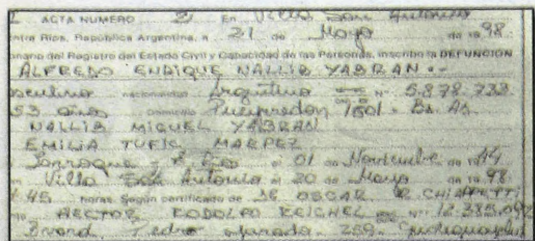 ACTA NUMERO 21 En Villa San Antonio
ntre Ríos, República Argentina, a 21 de Mayo de 1998
onario del Registro del Estado Civil y Capacidad de las Personas, inscribo la DEFUNCIÓN
ALFREDO ENRIQUE NALLIB YABRAN.-
sculino nacionalidad Argentino N° 5.878.733
53 años domicilio Pueyrredon 1501 - Bs. As.
NALLIB MIGUEL YABRAN
EMILIA TUFIC MARPEZ
Larroque - E. Rios el 01 de Noviembre de 1944
en Villa San Antonio el 20 de Mayo de 1998
45 horas Según certificado de OSCAR R. CHIAPPETTI
HECTOR RODOLFO REICHEL N° 12.385.092
Pedro 259